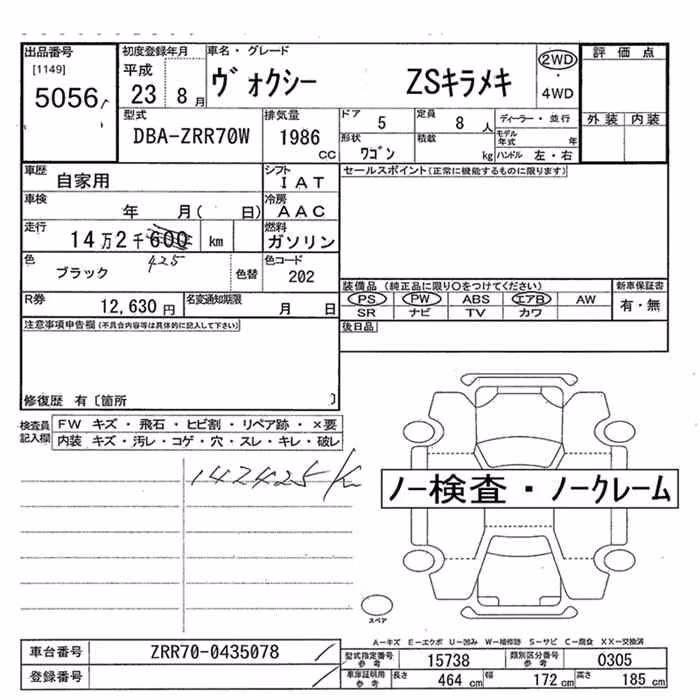 出品番号
[1149]
5056
初度登録年月
平成
23 8月
車名・グレード
ヴォクシー ZSキラメキ
2WD
・
4WD
評価点
外装 内装
型式
DBA-ZRR70W
排気量
1986
CC
ドア 5
定員 8人
ディーラー・並行
形状
ワゴン
積載
kg
モデル年式 年
ハンドル 左・右
車歴
自家用
シフト
IAT
セールスポイント(正常に機能するものに限ります)
車検
年 月( 日)
冷房
AAC
走行
14万2千600 km
425
燃料
ガソリン
色
ブラック
色替
色コード
202
装備品(純正品に限り○をつけてください)
新車保証書
PS PW ABS エアB AW
有・無
SR ナビ TV カワ
R券
12,630円
名変通知期限
月 日
後日品
注意事項申告欄(不具合内容等は具体的に記入して下さい)
修復歴 有〔箇所 〕
検査員
記入欄
FW キズ・飛石・ヒビ割・リペア跡・×要
内装 キズ・汚レ・コゲ・穴・スレ・キレ・破レ
142425K
ノー検査・ノークレーム
スペア
A-キズ E-エクボ U-凹み W-補修跡 S-サビ C-腐食 XX-交換済
車台番号
ZRR70-0435078
登録番号
型式指定番号
参考
15738
類別区分番号
参考
0305
車庫証明用
参考
長さ 464cm
幅 172cm
高さ 185cm